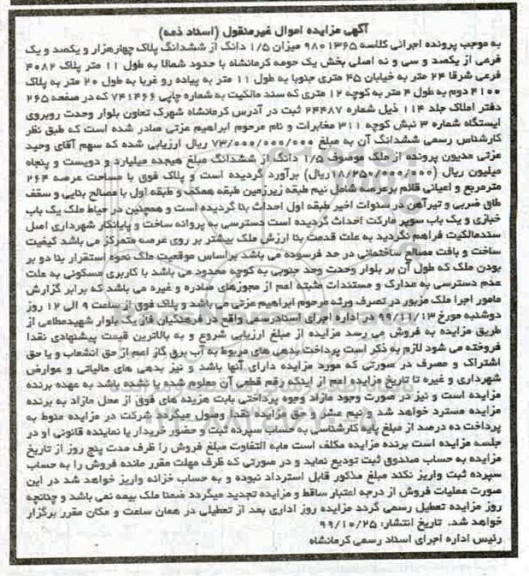 آگهی مزایده اموال غیرمنقول (اسناد ذمه)
به موجب پرونده اجرائی کلاسه ۹۸۰۱۳۶۵ میزان ۱/۵ دانگ از ششدانگ پلاک چهارهزار و یکصد و یک
فرعی از یکصد و سی و نه اصلی بخش یک حومه کرمانشاه با حدود شمالا به طول ۱۱ متر پلاک ۴۰۸۲
فرعی شرقا ۲۴ متر به خیابان ۴۵ متری جنوبا به طول ۱۱ متر به پیاده رو غربا به طول ۲۰ متر به پلاک
۴۱۰۰ دوم به طول ۴ متر به کوچه ۱۲ متری که سند مالکیت به شماره چاپی ۷۴۱۴۶۶ که در صفحه ۲۶۵
دفتر املاک جلد ۱۱۴ ذیل شماره ۲۴۴۸۷ ثبت در آدرس کرمانشاه شهرک تعاون بلوار وحدت روبروی
ایستگاه شماره ۳ نبش کوچه ۳۱۱ مخابرات و نام مرحوم ابراهیم عزتی صادر شده است که طبق نظر
کارشناس رسمی ششدانگ آن به مبلغ ۷۳/۰۰۰/۰۰۰/۰۰۰ ریال ارزیابی شده که سهم آقای وحید
عزتی مدیون پرونده از ملک موصوف ۱/۵ دانگ از ششدانگ مبلغ هیجده میلیارد و دویست و پنجاه
میلیون ریال (۱۸/۲۵۰/۰۰۰/۰۰۰ ریال) برآورد گردیده است و پلاک فوق با مساحت عرصه ۲۶۴
مترمربع و اعیانی قائم برعرصه شامل نیم طبقه زیرزمین طبقه همکف و طبقه اول با مصالح بنایی و سقف
طاق ضربی و تیرآهن در سنوات اخیر طبقه اول احداث بنا گردیده است و همچنین در حیاط ملک یک باب
خبازی و یک باب سوپر مارکت احداث گردیده است دسترسی به پروانه ساخت و پایانکار شهرداری اصل
سندمالکیت فراهم نگردید به علت قدمت بنا ارزش ملک بیشتر بر روی عرصه متمرکز می باشد کیفیت
ساخت و بافت مصالح ساختمانی در حد فرسوده می باشد براساس موقعیت ملک نحوه استقرار بنا دو بر
بودن ملک که طول آن بر بلوار وحدت وحد جنوبی به کوچه محدود می باشد با کاربری مسکونی به علت
عدم دسترسی به مدارک و مستندات مثبته اعم از مجوزهای صادره و غیره می باشد که برابر گزارش
مامور اجرا ملک مزبور در تصرف ورثه مرحوم ابراهیم عزتی می باشد و پلاک فوق از ساعت ۹ الی ۱۲ روز
دوشنبه مورخ ۹۹/۱۱/۱۳ در اداره اجرای اسنادرسمی واقع در فرهنگیان فاز یک بلوار شهیدمطاعی از
طریق مزایده به فروش می رسد مزایده از مبلغ ارزیابی شروع و به بالاترین قیمت پیشنهادی نقدا
فروخته می شود لازم به ذکر است پرداخت بدهی های مربوط به آب برق گاز اعم از حق انشعاب و یا حق
اشتراک و مصرف در صورتی که مورد مزایده دارای آنها باشد و نیز بدهی های مالیاتی و عوارض
شهرداری و غیره تا تاریخ مزایده اعم از اینکه رقم قطعی آن معلوم شده یا نشده باشد به عهده برنده
مزایده است و نیز در صورت وجود مازاد وجوه پرداختی بابت هزینه های فوق از محل مازاد به برنده
مزایده مسترد خواهد شد و نیم عشر و حق مزایده نقدا وصول میگردد شرکت در مزایده منوط به
پرداخت ده درصد از مبلغ پایه کارشناسی به حساب سپرده ثبت و حضور خریدار یا نماینده قانونی او در
جلسه مزایده است برنده مزایده مکلف است مابه التفاوت مبلغ فروش را ظرف مدت پنج روز از تاریخ
مزایده به حساب صندوق ثبت تودیع نماید و در صورتی که ظرف مهلت مقرر مانده فروش را به حساب
سپرده ثبت واریز نکند مبلغ مذکور قابل استرداد نبوده و به حساب خزانه واریز خواهد شد در این
صورت عملیات فروش از درجه اعتبار ساقط و مزایده تجدید میگردد ضمنا ملک بیمه نمی باشد و چنانچه
روز مزایده تعطیل رسمی گردد مزایده روز اداری بعد از تعطیلی در همان ساعت و مکان مقرر برگزار
خواهد شد. تاریخ انتشار: ۹۹/۱۰/۲۵
رئیس اداره اجرای اسناد رسمی کرمانشاه